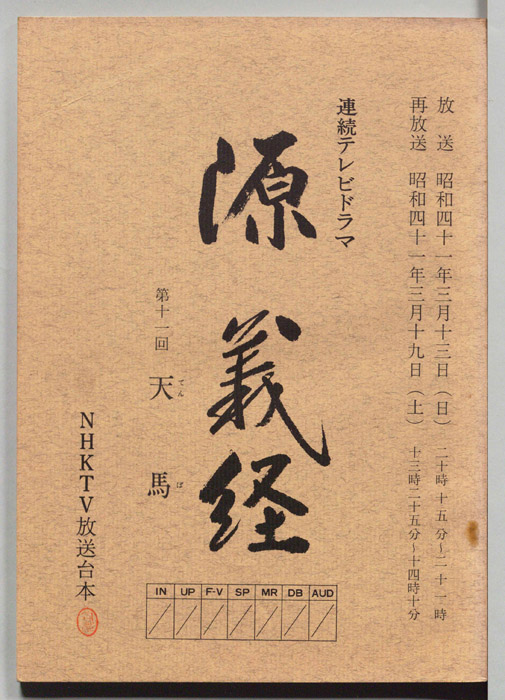 放送 昭和四十一年三月十三日(日) 二十時十五分～二十一時
再放送 昭和四十一年三月十九日(土) 十三時二十五分～十四時十分
連続テレビドラマ
源義経
第十一回 天馬
てん ば
NHKTV放送台本
IN UP F-V SP MR DB AUD